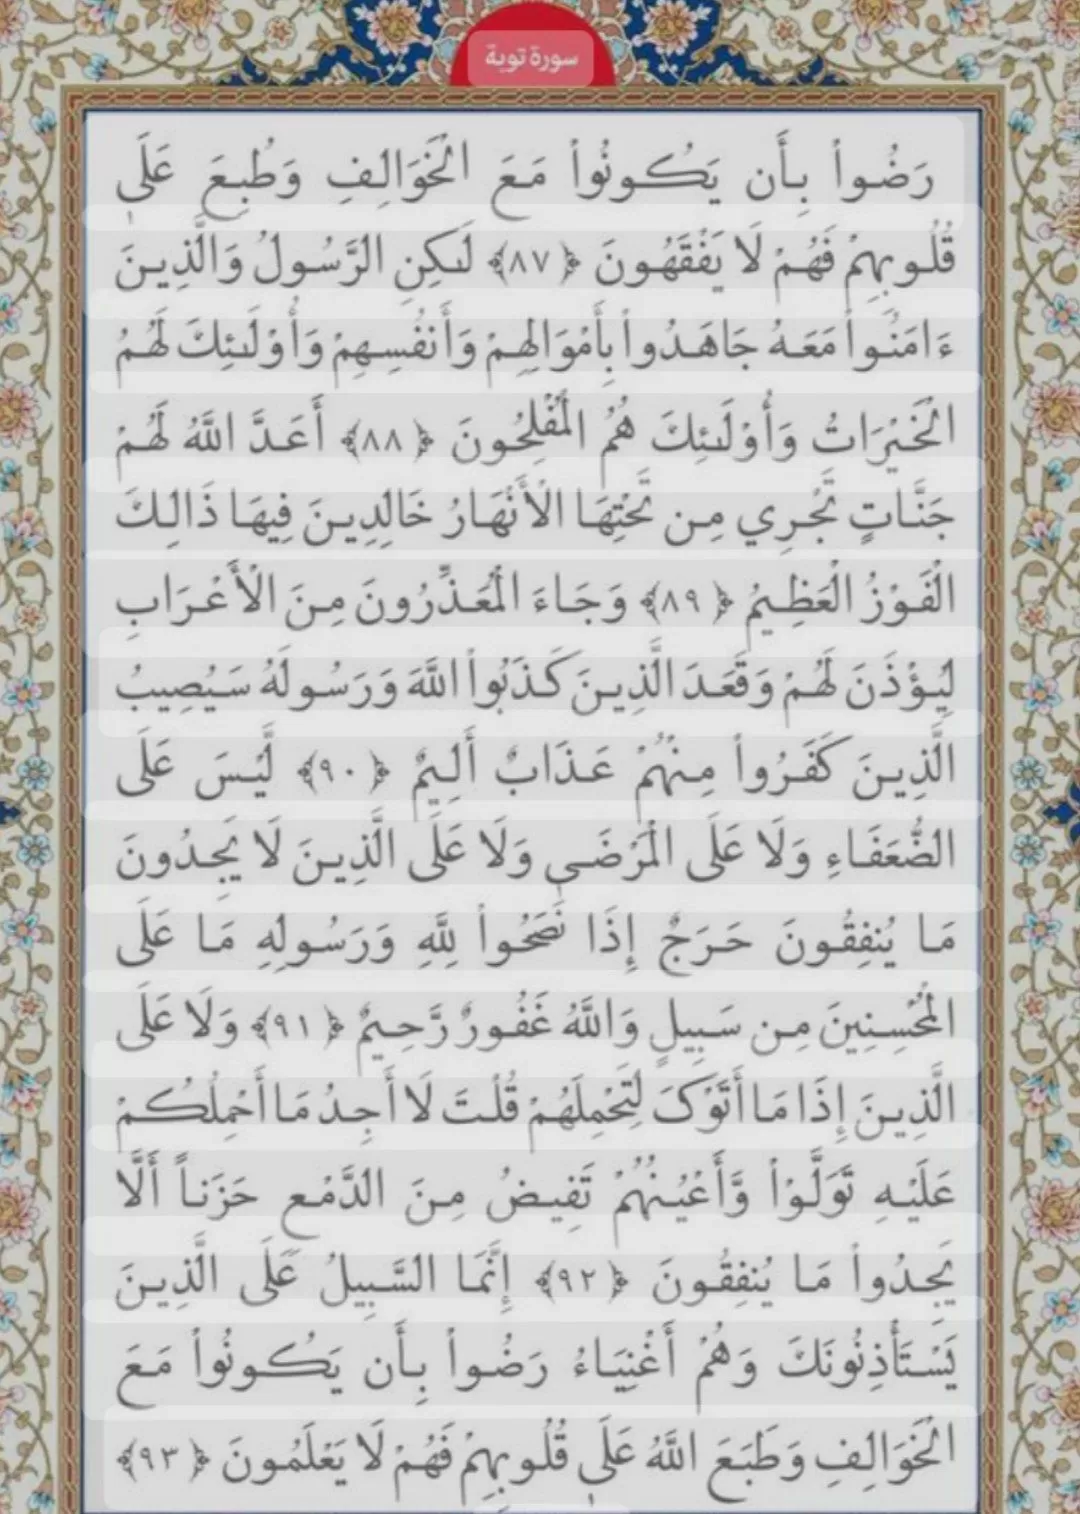 سورة توبة
رَضُواْ بِأَن يَكُونُواْ مَعَ الْخَوَالِفِ وَطُبِعَ عَلَى
قُلُوبِهِمْ فَهُمْ لَا يَفْقَهُونَ ﴿٨٧﴾ لَكِنِ الرَّسُولُ وَالَّذِينَ
ءَامَنُواْ مَعَهُ جَاهَدُواْ بِأَمْوَالِهِمْ وَأَنفُسِهِمْ وَأُوْلَئِكَ لَهُمُ
الْخَيْرَاتُ وَأُوْلَئِكَ هُمُ الْمُفْلِحُونَ ﴿٨٨﴾ أَعَدَّ اللَّهُ لَهُمْ
جَنَّاتٍ تَجْرِي مِن تَحْتِهَا الْأَنْهَارُ خَالِدِينَ فِيهَا ذَالِكَ
الْفَوْزُ الْعَظِيمُ ﴿٨٩﴾ وَجَاءَ الْمُعَذِّرُونَ مِنَ الْأَعْرَابِ
لِيُؤْذَنَ لَهُمْ وَقَعَدَ الَّذِينَ كَذَبُواْ اللَّهَ وَرَسُولَهُ سَيُصِيبُ
الَّذِينَ كَفَرُواْ مِنْهُمْ عَذَابٌ أَلِيمٌ ﴿٩٠﴾ لَّيْسَ عَلَى
الضُّعَفَاءِ وَلَا عَلَى الْمَرْضَى وَلَا عَلَى الَّذِينَ لَا يَجِدُونَ
مَا يُنفِقُونَ حَرَجٌ إِذَا نَصَحُواْ لِلَّهِ وَرَسُولِهِ مَا عَلَى
الْمُحْسِنِينَ مِن سَبِيلٍ وَاللَّهُ غَفُورٌ رَّحِيمٌ ﴿٩١﴾ وَلَا عَلَى
الَّذِينَ إِذَا مَا أَتَوْكَ لِتَحْمِلَهُمْ قُلْتَ لَا أَجِدُ مَا أَحْمِلُكُمْ
عَلَيْهِ تَوَلَّوْاْ وَّأَعْيُنُهُمْ تَفِيضُ مِنَ الدَّمْعِ حَزَناً أَلَّا
يَجِدُواْ مَا يُنفِقُونَ ﴿٩٢﴾ إِنَّمَا السَّبِيلُ عَلَى الَّذِينَ
يَسْتَأْذِنُونَكَ وَهُمْ أَغْنِيَاءُ رَضُواْ بِأَن يَكُونُواْ مَعَ
الْخَوَالِفِ وَطَبَعَ اللَّهُ عَلَى قُلُوبِهِمْ فَهُمْ لَا يَعْلَمُونَ ﴿٩٣﴾